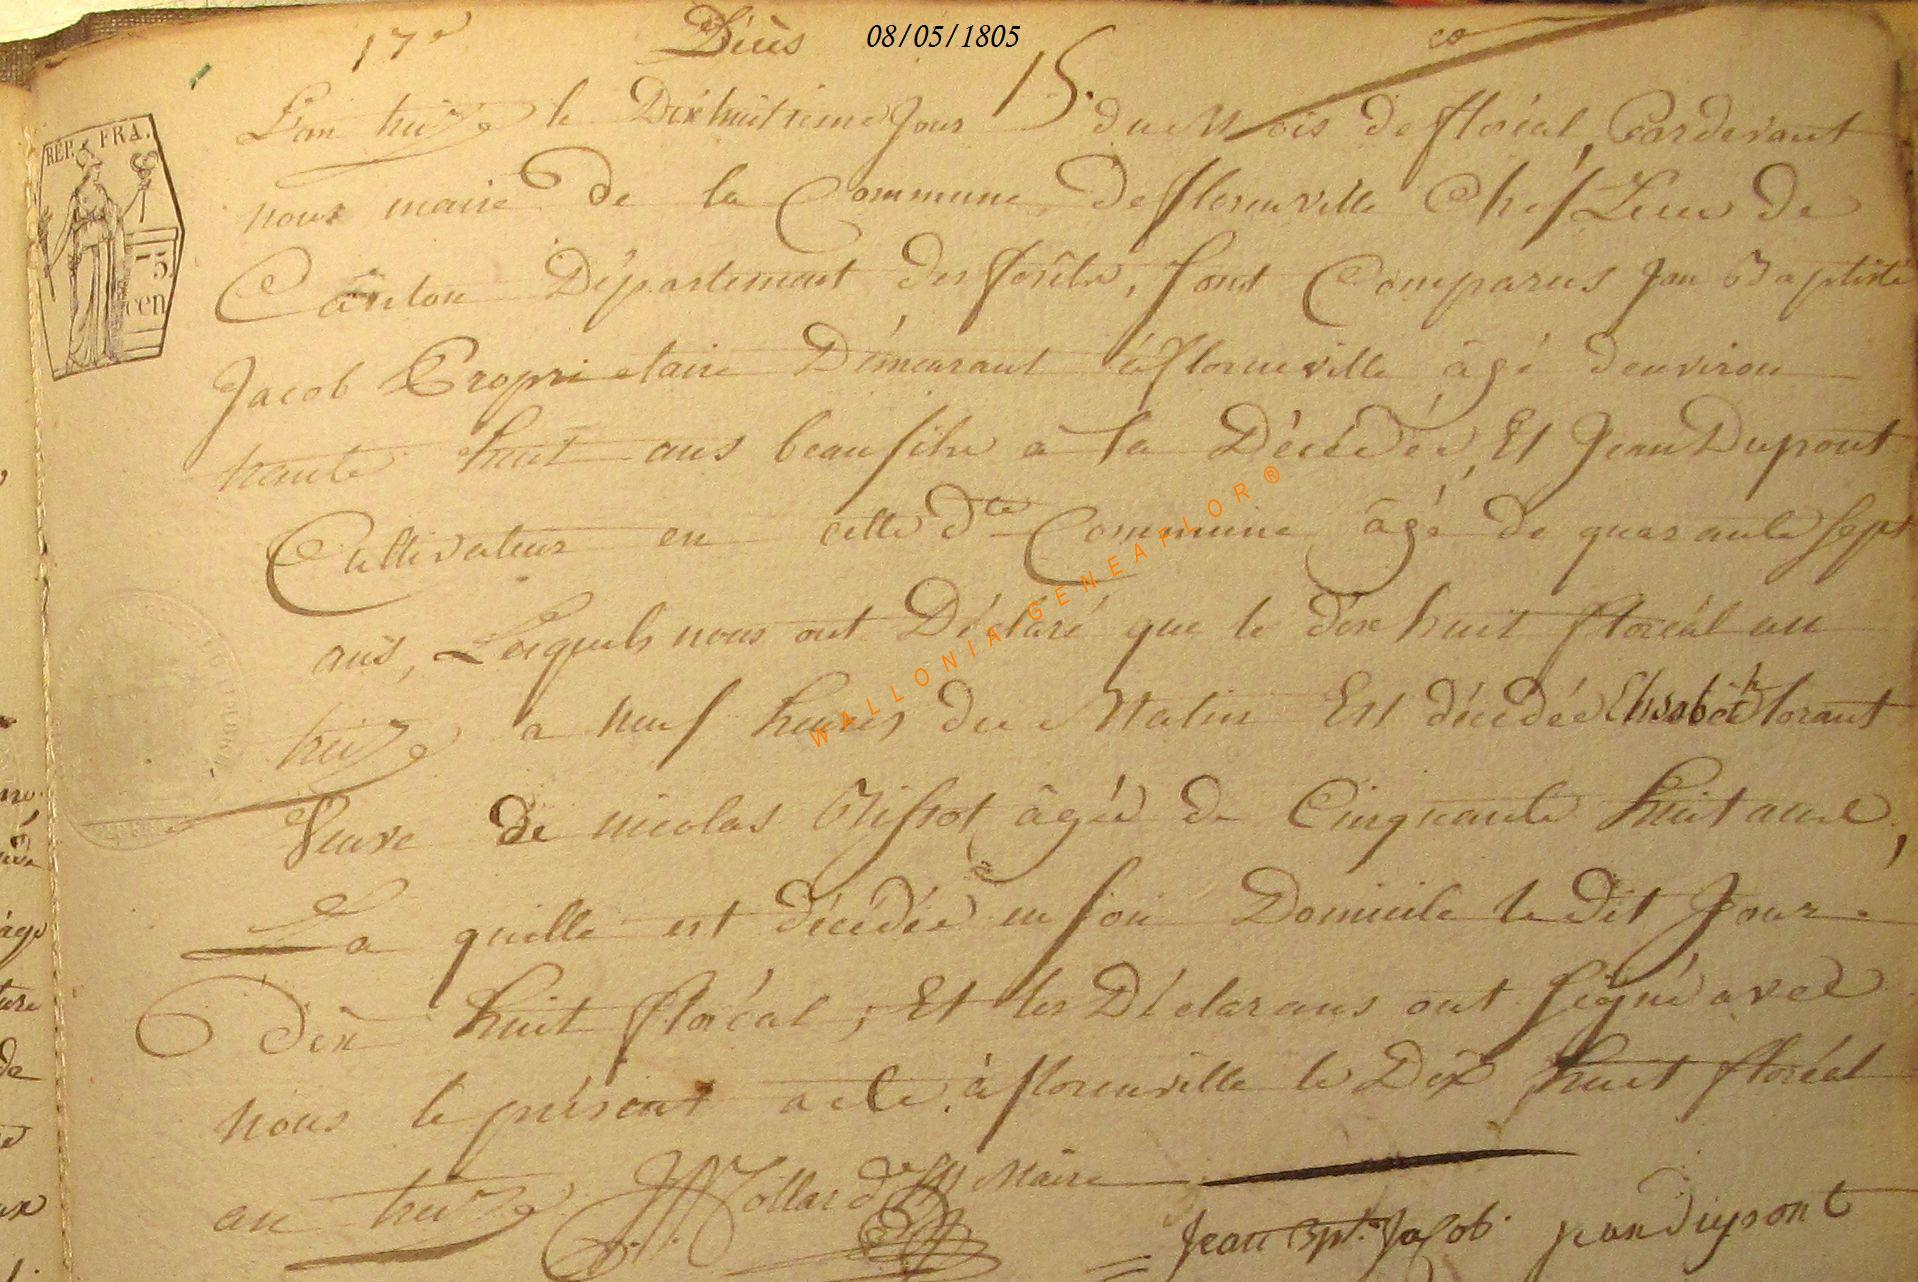 17e Décès 08/05/1805
15.
L'an treize le Dixhuitieme Jour du Mois de floréal, Pardevant
nous maire de la Commune de florenville Chef Lieu de
Canton Département des forêts, sont Comparus Jean Baptiste
Jacob Proprietaire Démeurant à florenville âgé denviron
trente huit ans beaufils à la Décédée, Et Jean Dupont
Cultivateur en cette dte Commune âgé de quarante sept
ans, Lesquels nous ont Déclaré que le dix huit floréal an
treize a neuf heures du Matin Est décédée Elisabeth lorant
Veuve de nicolas âgée de Cinquante huit ans,
La quelle est décédée en son Domicile le dit Jour
Dix huit floréal, Et les Déclarans ont signé avec
nous le présent acte. à florenville le Dix huit floréal
an treize Maire
Jean Bpt. Jacob jean dupont
RÉP. FRA.
75
cen
WALLONIA GENEAFLOR ®